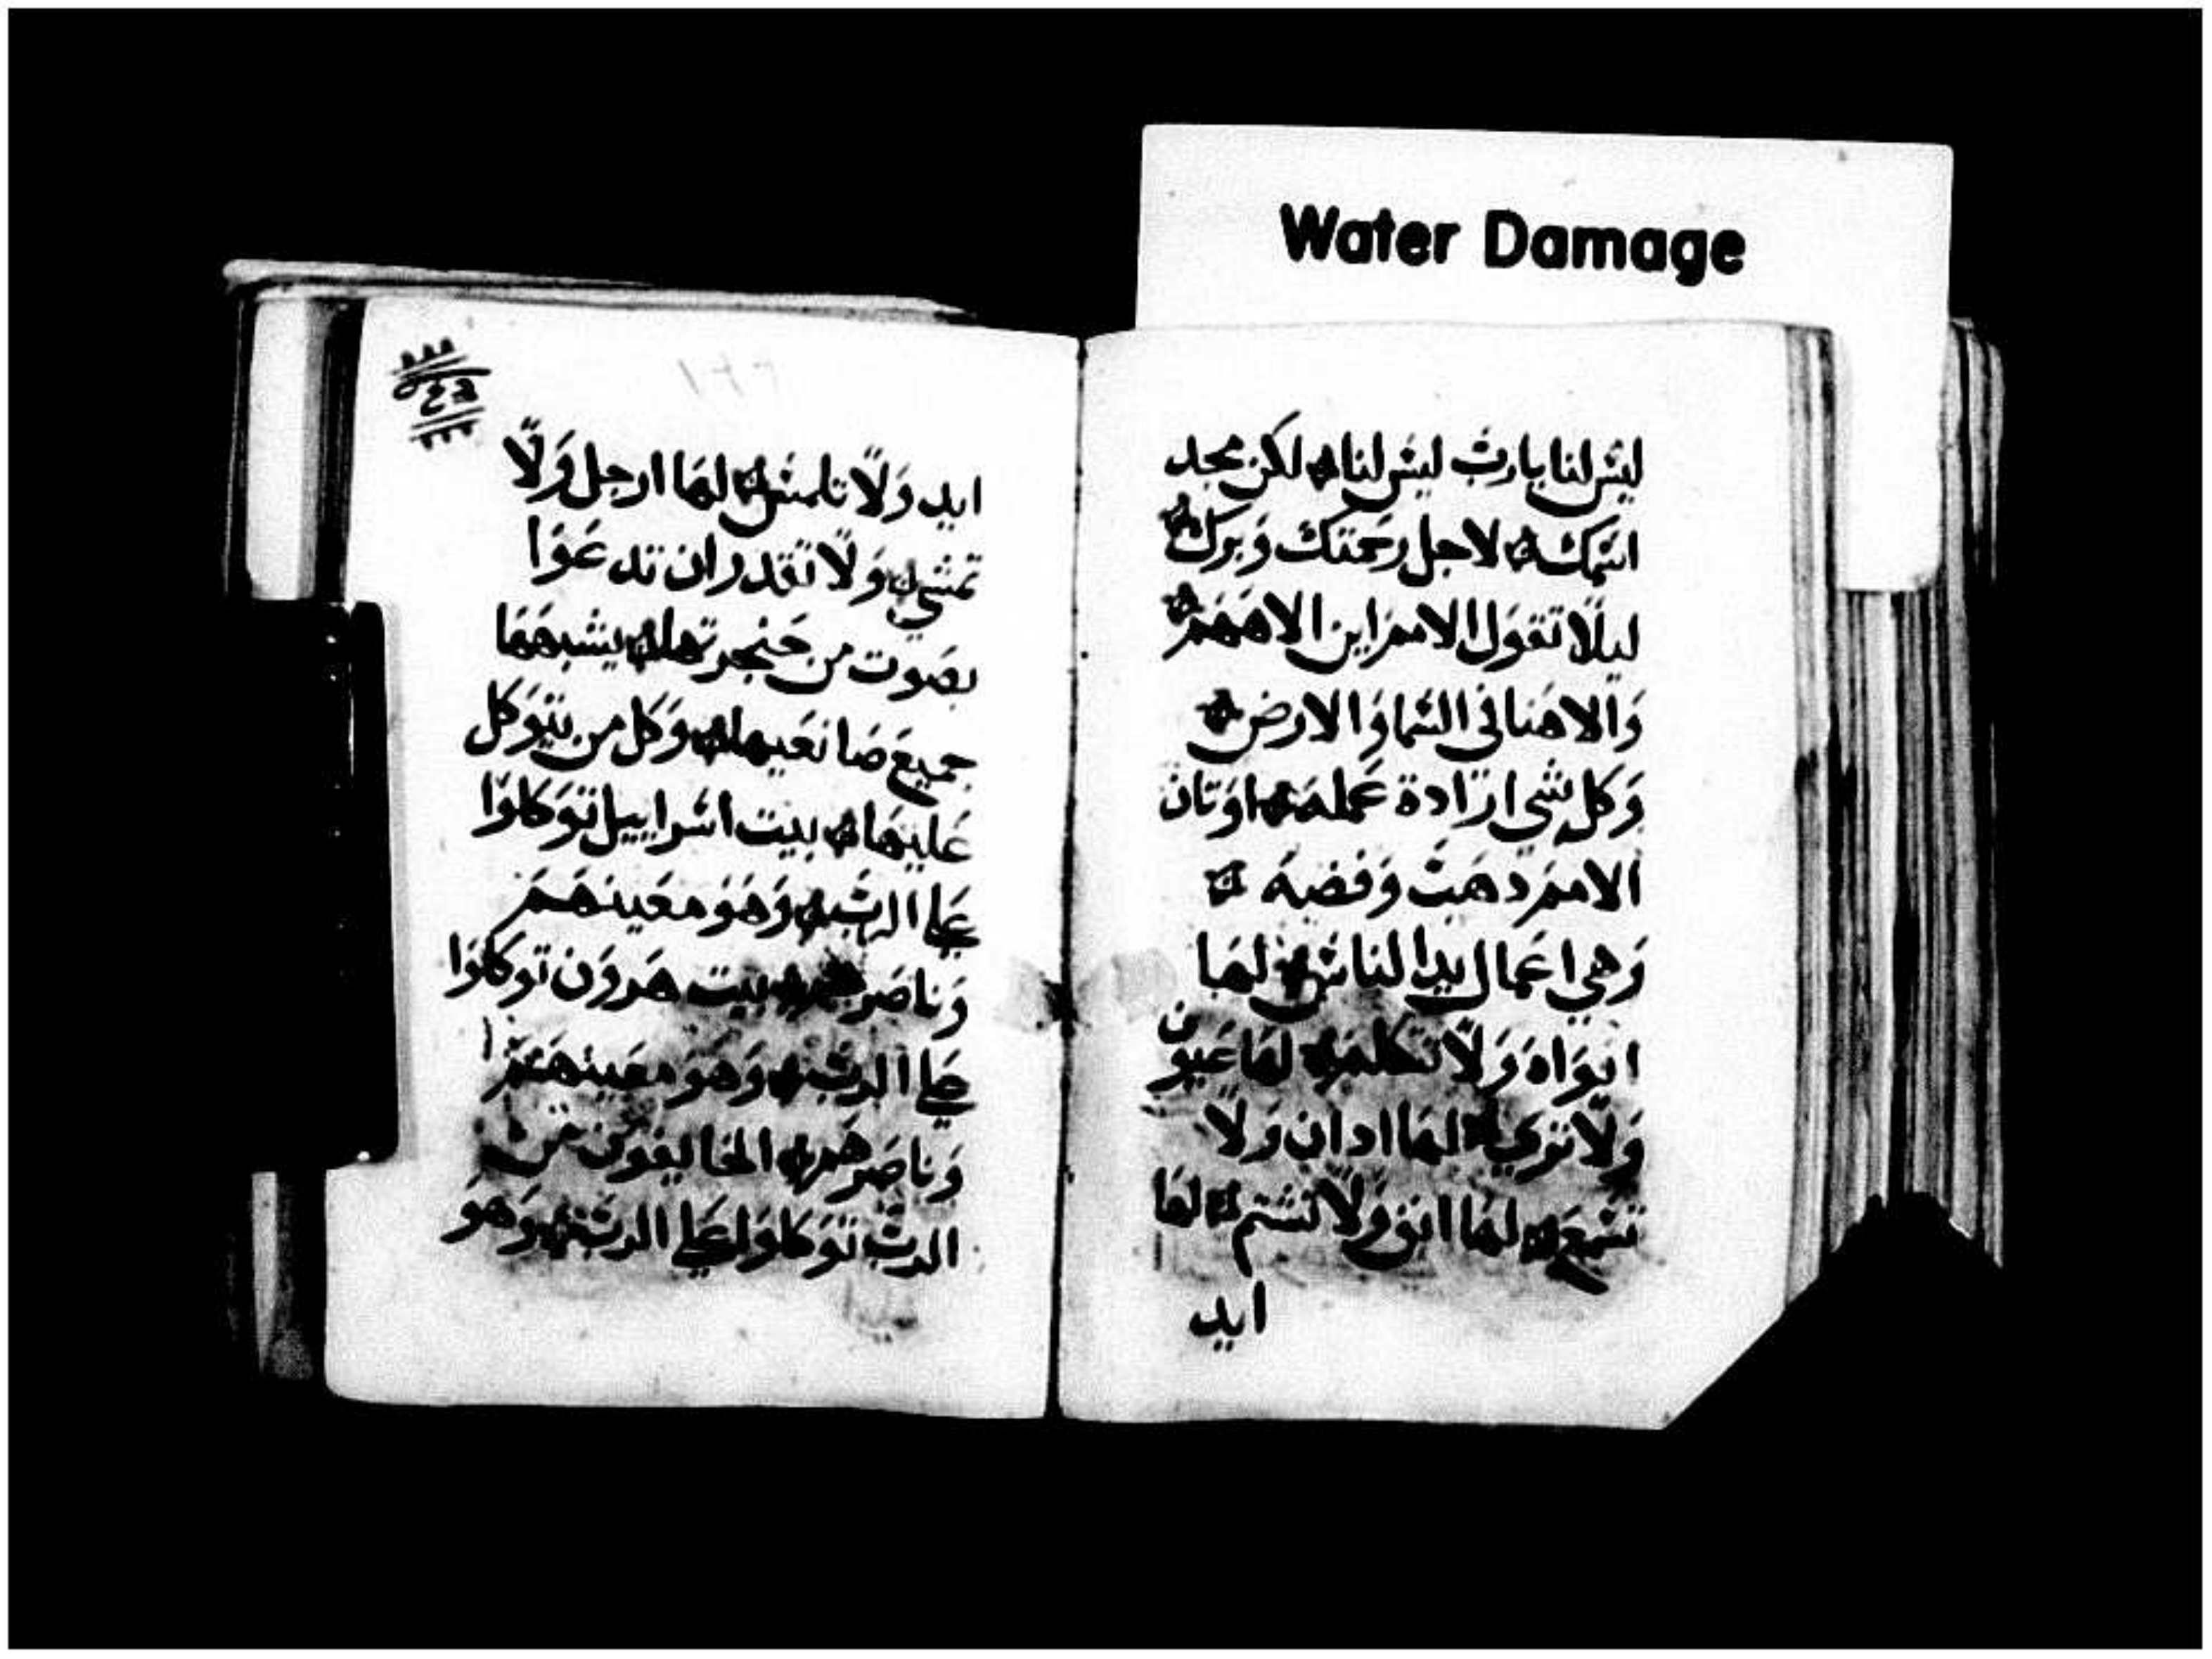 Water Damage
ليس لنا يارب ليس لنا لكن مجد
اسمك لاجل رحمتك وبرك
ليلا تقول الامم اين الاههم
والاهنا في السما والارض
وكل شي ارادة عمله اوتان
الامم دهب وفضه
وهي اعمال يدا الناس لها
افواه ولا تتكلم لها عيون
ولا تري لها ادان ولا
تسمع لها انف ولا تشتم لها
ايد
ايد ولا تلمس لها ارجل ولا
تمشي ولا تقدر ان تدعوا
بصوت من حنجرتها يشبهها
جميع صانعيها وكل من يتوكل
عليها بيت اسراييل توكلوا
علي الرب وهو معينهم
وناصرهم بيت هرون توكلوا
علي الرب وهو معينهم
وناصرهم الخايفون من
الرب توكلوا علي الرب وهو